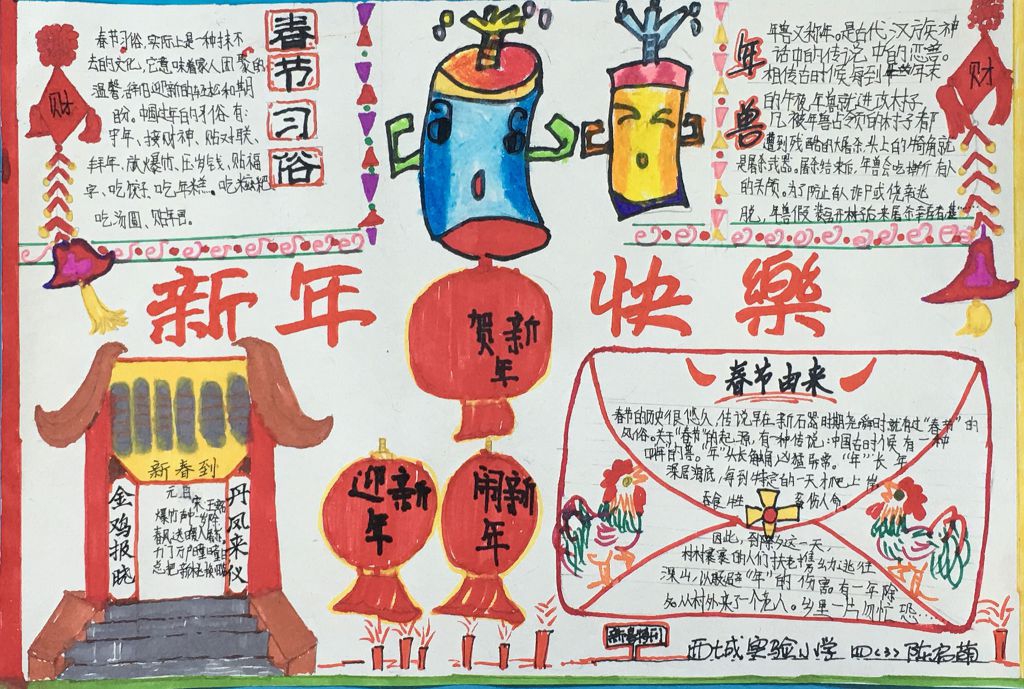 春节习俗
春节习俗,实际上是一种抹不
去的文化,它意味着家人团聚的
温馨,辞旧迎新的
中国过年的习俗有:
守年、接财神、贴对联、
拜年、放爆竹、压岁钱、贴福
字、吃饺子、吃年糕、吃
吃汤圆、贴年画。
财
年兽
年兽又称年。是古代汉族神
话中的传说中的恶兽。
相传古时候每到年末
的午夜,年兽就进攻村子,
凡被年兽占领的村子都
遭到残酷的大屠杀,头上的犄角就
是屠杀武器。屠杀结束后,年兽会
的关颅。为了防止有人诈尸或侥幸逃
脱,年兽
财
新年快樂
贺新年
迎新年
闹新年
新春到
金鸡报晓
丹凤来仪
元日
宋 王
爆竹声中一岁除
春风送暖入屠苏
千门万户曈曈日
总把新桃换旧
春节由来
春节的历史很悠久,传说早在新石器时期尧舜时就有过“春节”的
风俗。关于“春节”的起源,有一种传说:中国古时候有一种
叫年的兽。“年”头长触角凶猛异常。“年”长年
深居海底,每到特定的一天才爬上岸
吞食牲 害伤人命。
因此,到除夕这一天,
村村寨寨的人们扶老携幼逃往
深山,以躲避“年”的伤害。有一年除
夕从村外来了个老人。乡里一片匆忙恐…
新春特刊
西七城实验小学 四〈3〉